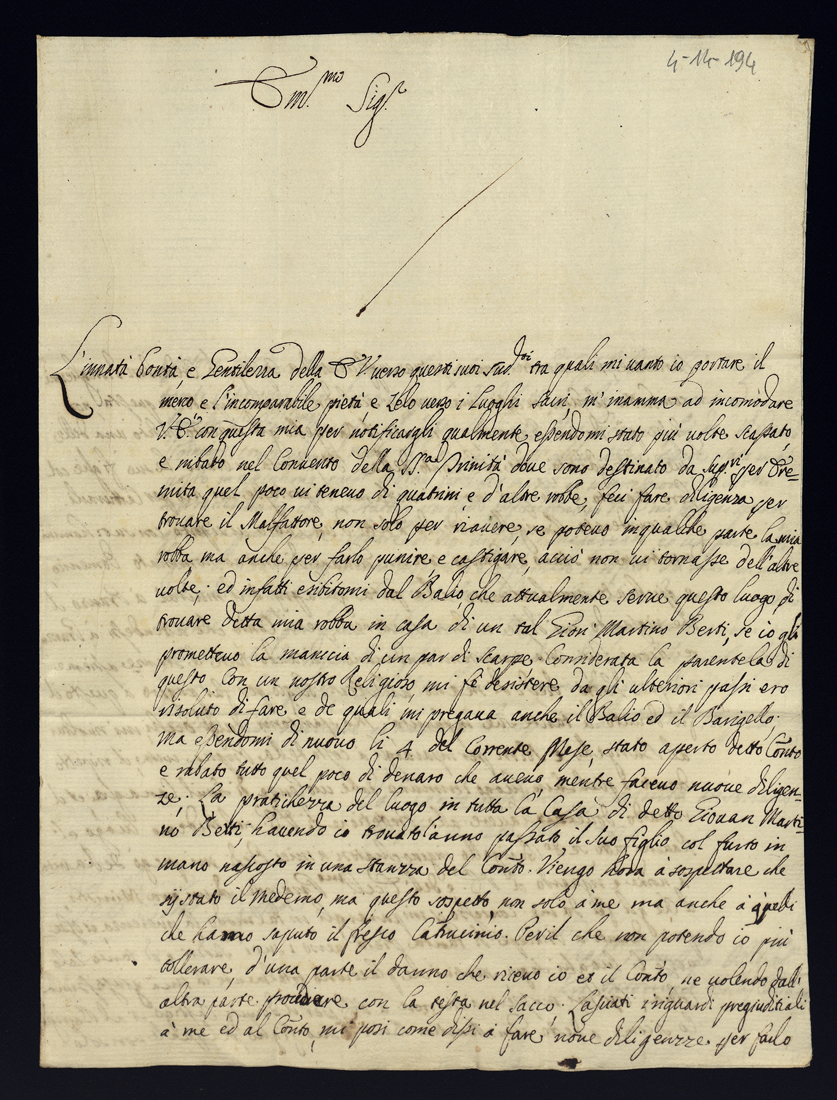 4-14-194
Em.mo Sig.r
L'innata Bontà, e Gentilezza della E V verso questi suoi sud.ti tra quali mi vanto io portare il
meno e l'incomparabile pietà e Zelo verso i Luoghi Sacri, m'inamma ad incomodare
V. E. con questa mia per notificargli qualmente essendomi stato più volte scassato,
e rubato nel Convento della SS.ma Trinità dove sono destinato da Sup.ri per Ere-
mita quel poco vi tenevo di quatrini e d'altre robbe, feci fare diligenza per
trovare il Malfattore, non solo per riavere, se potevo in qualche parte la mia
robba ma anche per farlo punire e castigare, acciò non vi tornasse dell'altre
volte, ed infatti esibitomi dal Balio, che attualmente serve questo luogo di
trovare detta mia robba in casa di un tal Gioñ Martino Berti, se io gli
promettevo la mancia di un par di scarpe. Considerata la parentela di
questo con un nostro Religioso, mi fè desistere da gli ulteriori passi ero
risoluto di fare e de quali mi pregava anche il Balio ed il Barigello.
Ma essendomi di nuovo li 4 del Corrente Mese, stato aperto detto Conto
e rubato tutto quel poco di denaro che avevo, mentre facevo nuove diligen-
ze; La pratichezza del luogo in tutta la Casa di detto Giovan Marti-
no Berti, havendo io trovato l'anno passato il suo figlio col furto in
mano nascosto in una stanza del Conto. Viengo hora à sospettare che
sij stato il medemo, ma questo sospetto non solo à me ma anche à quelli
che hanno saputo il fresco Latrucinio. Per il che non potendo io più
tollerare, d'una parte il danno che ricevo io et il Conto, ne volendo dall'
altra parte procedere con la testa nel sacco. Lasciati i riguardi pregiuditiali
à me ed al Conto, mi posi come dissi à fare nove diligenzze per farlo